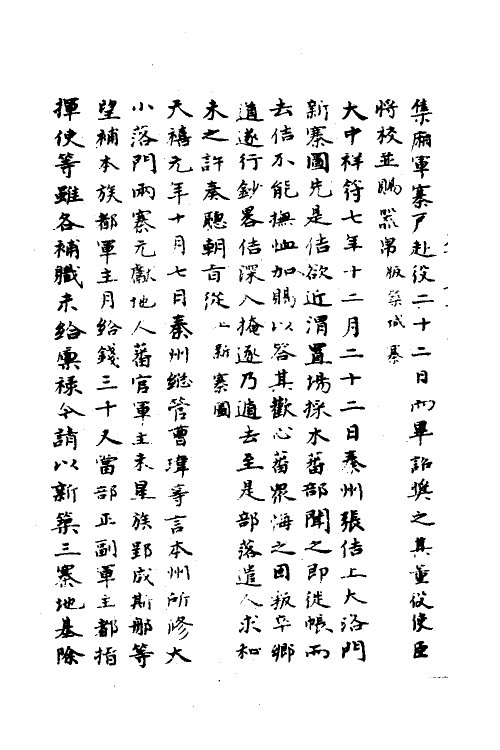 集廂軍寨戸赴役二十二日而畢詔獎之其董役使臣
將校並賜器帛版築城寨
大中祥符七年十二月二十二日秦州張佶上大洛門
新寨圖先是佶欲近渭置場採木蕃部聞之即徙帳而
去佶不能撫恤加賜以答其歡心蕃衆悔之因叛卒鄉
道遂行鈔畧佶深入掩逐乃遁去至是部落遣人求和
未之許奏聽朝旨從上新寨圖
天禧元年十月七日秦州總管曹瑋等言本州所修大
小落門兩寨元獻地人蕃官軍主未星族郢成斯那等
望補本族都軍主月給錢三十又當部正副軍主都指
揮使等雖各補職未給廩祿今請以新築三寨地基除